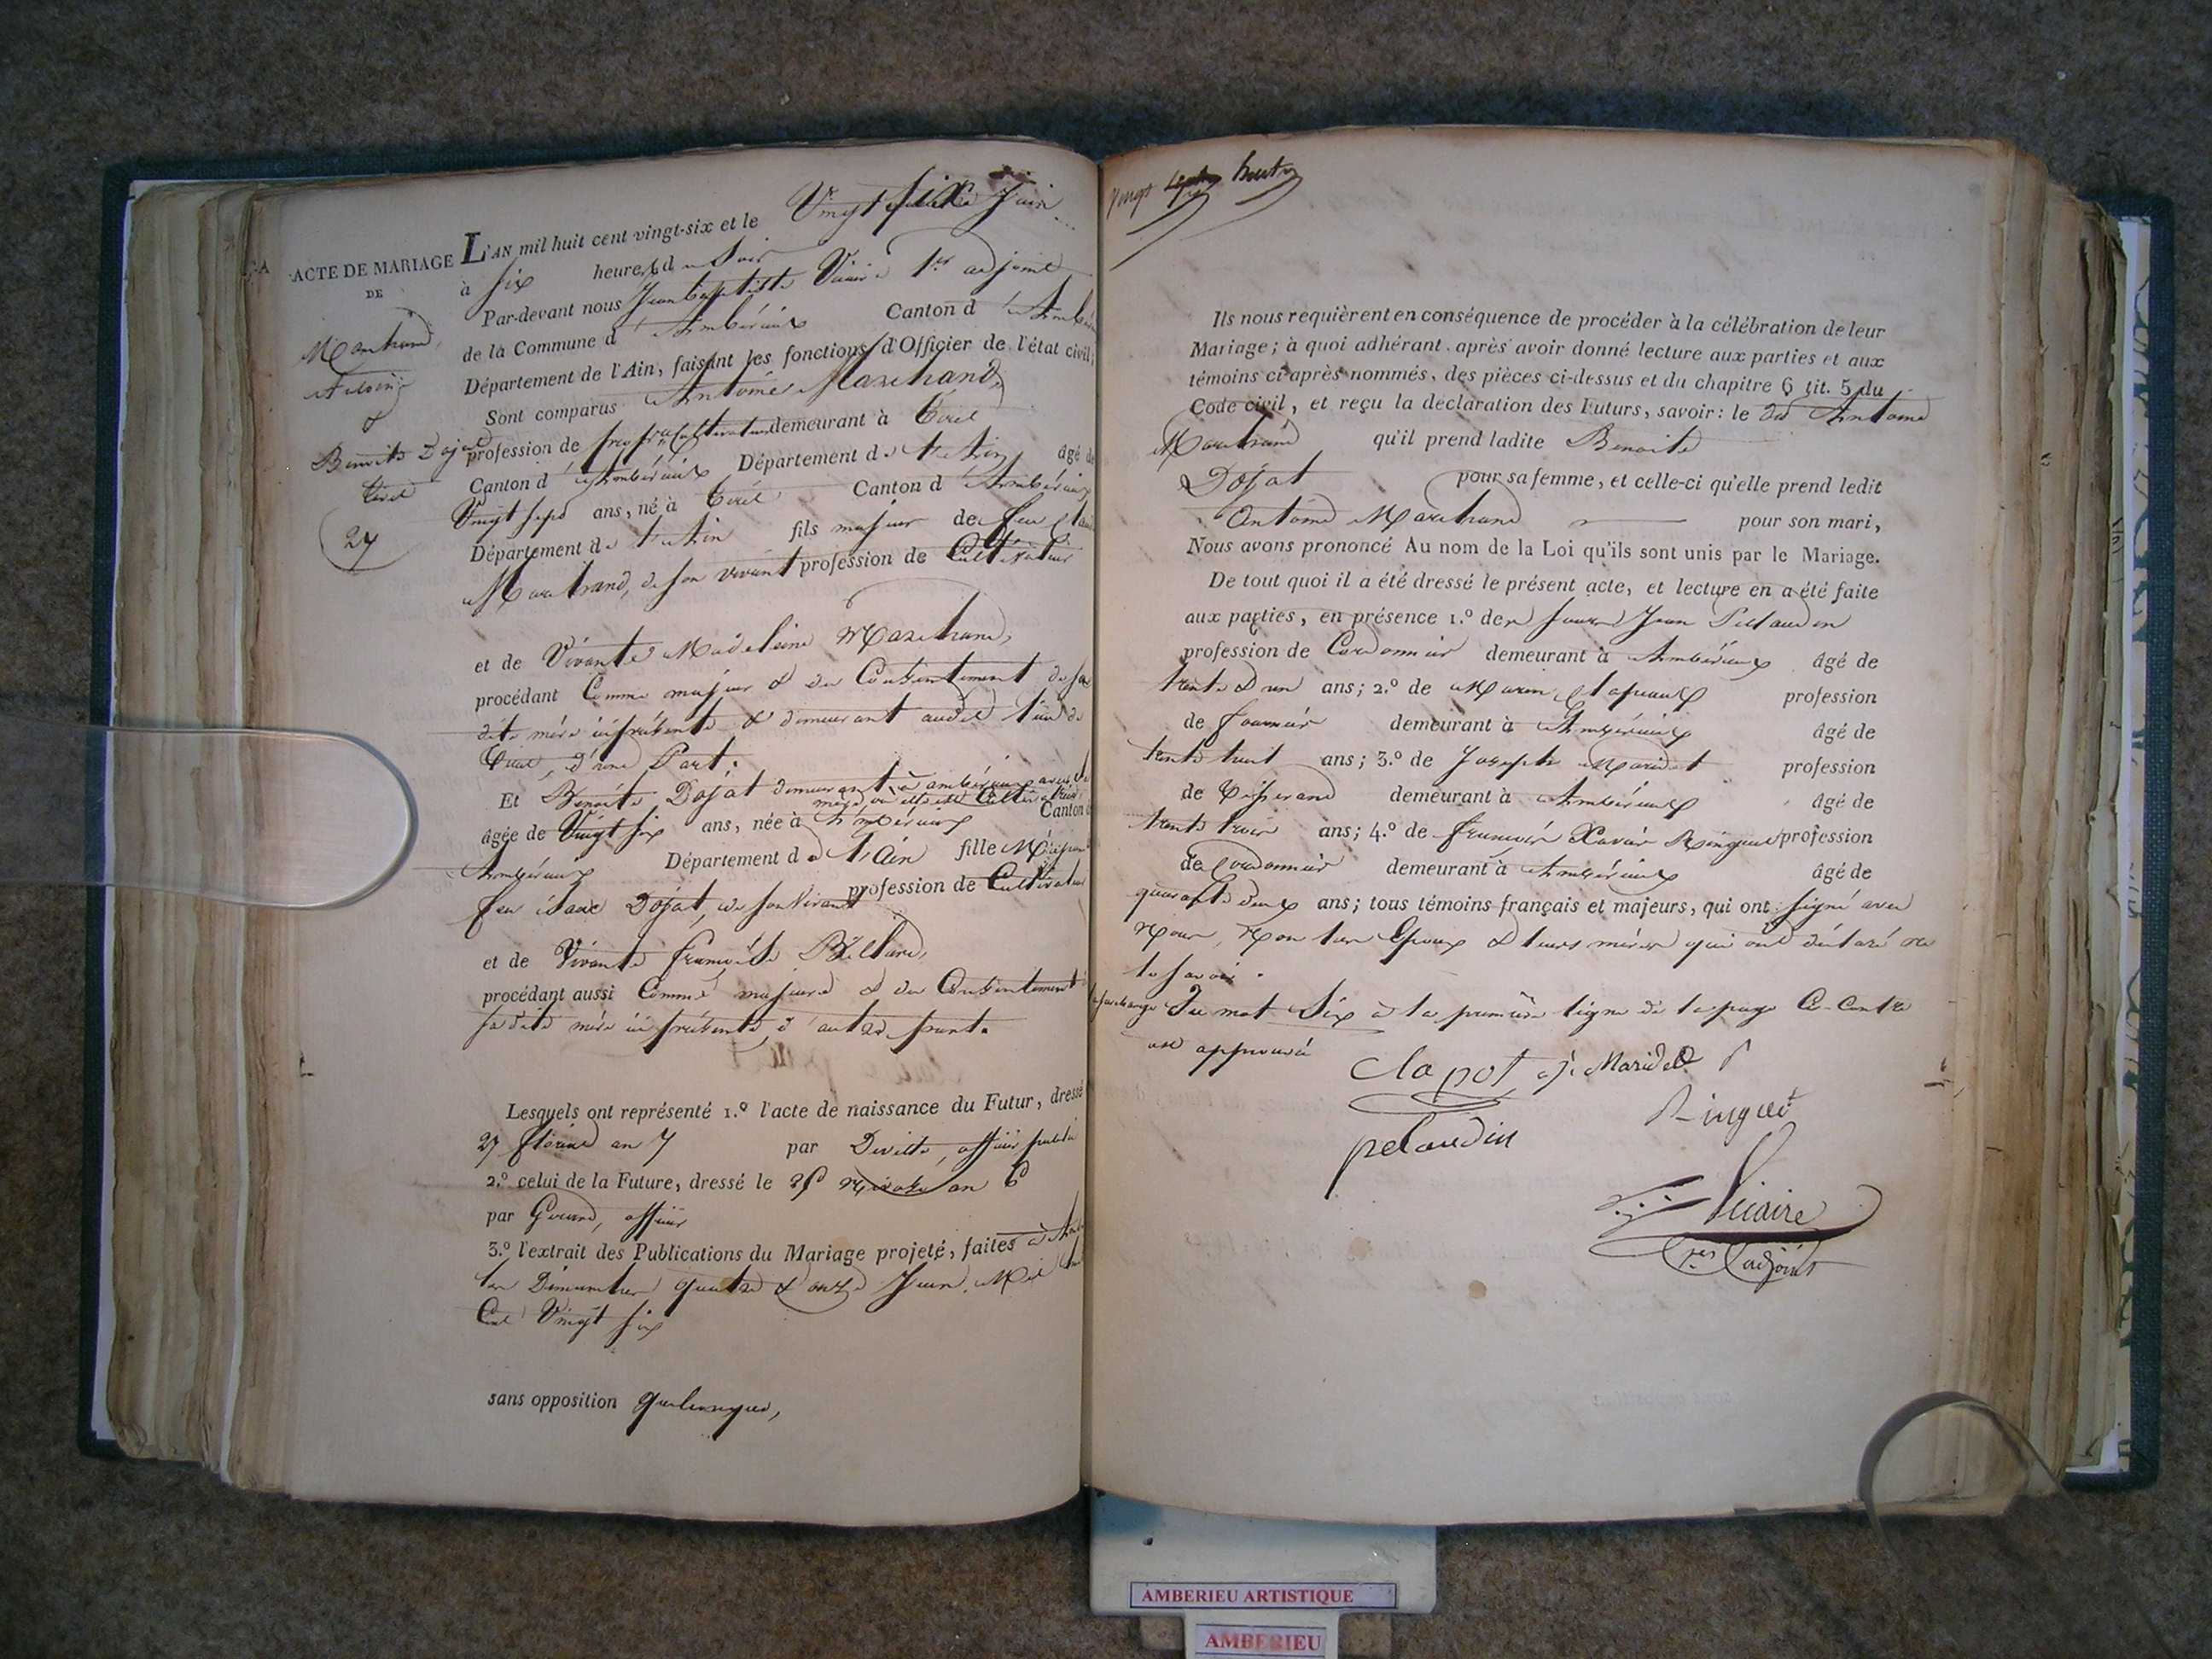 ACTE DE MARIAGE
DE
Marchand
Antoine
&
Benoite Dojat
Tiret
27
L'AN mil huit cent vingt-six et le Vingt six Juin
à six heures du Soir
Par-devant nous Jean baptiste Vicaire 1er adjoint
de la Commune d'Ambérieux Canton d'Ambérieux
Département de l'Ain, faisant les fonctions d'Officier de l'état civil;
Sont comparus Antoine Marchand,
profession de propre Cultivateur demeurant à Tiret
Canton d'Ambérieux Département de l'Ain âgé de
Vingt sept ans, né à Tiret Canton d'Ambérieux
Département de l'Ain fils majeur de feu
Marchand, de son vivant profession de Cultivateur
et de Vivante Madeleine Marchand,
procédant Comme majeur & du Consentement de sa
dite mère ici présente & demeurant audit lieu de
Tiret, d'une Part.
Et Benoite Dojat demeurant à ambérieux avec sa
mère, où elle est Cultivatrice
âgée de Vingt six ans, née à Ambérieux Canton d
Ambérieux Département de l'Ain fille Majeure
feu isaac Dojat, de son Vivant profession de Cultivateur
et de Vivante françoise Billard,
procédant aussi Comme majeure & du Consentement
sa dite mère ici présente, d'autre part.
Lesquels ont représenté 1.º l'acte de naissance du Futur, dressé
27 floréal an 7 par officier public
2.º celui de la Future, dressé le Nivose an 6
par officier
3.º l'extrait des Publications du Mariage projeté, faites à
les Dimanches quatre & onze Juin Mil huit
Cent Vingt six
sans opposition quelconque,
Vingt huit
Ils nous requièrent en conséquence de procéder à la célébration de leur
Mariage; à quoi adhérant, après avoir donné lecture aux parties et aux
témoins ci-après nommés, des pièces ci-dessus et du chapitre 6 tit. 5 du
Code civil, et reçu la déclaration des Futurs, savoir: le dit Antoine
Marchand qu'il prend ladite Benoite
Dojat pour sa femme, et celle-ci qu'elle prend ledit
Antoine Marchand pour son mari,
Nous avons prononcé Au nom de la Loi qu'ils sont unis par le Mariage.
De tout quoi il a été dressé le présent acte, et lecture en a été faite
aux parties, en présence 1.º de Jean Pelaudin
profession de Cordonnier demeurant à Ambérieux âgé de
trente & un ans; 2.º de profession
de fournier demeurant à Ambérieux âgé de
trente huit ans; 3.º de Joseph Maridet profession
de Tisserand demeurant à Ambérieux âgé de
trente trois ans; 4.º de françois Xavier Ringuet profession
de Cordonnier demeurant à Ambérieux âgé de
quarante deux ans; tous témoins français et majeurs, qui ont signé avec
Nous, Non les Epoux & leurs mères qui ont déclaré ne
le savoir.
la surcharge Du mot Six à la première ligne de la page Ci-Contre
est approuvée
Clapot j. Maridet
Ringuet
pelaudin
Vicaire
1er adjoint
AMBERIEU ARTISTIQUE
AMBERIEU